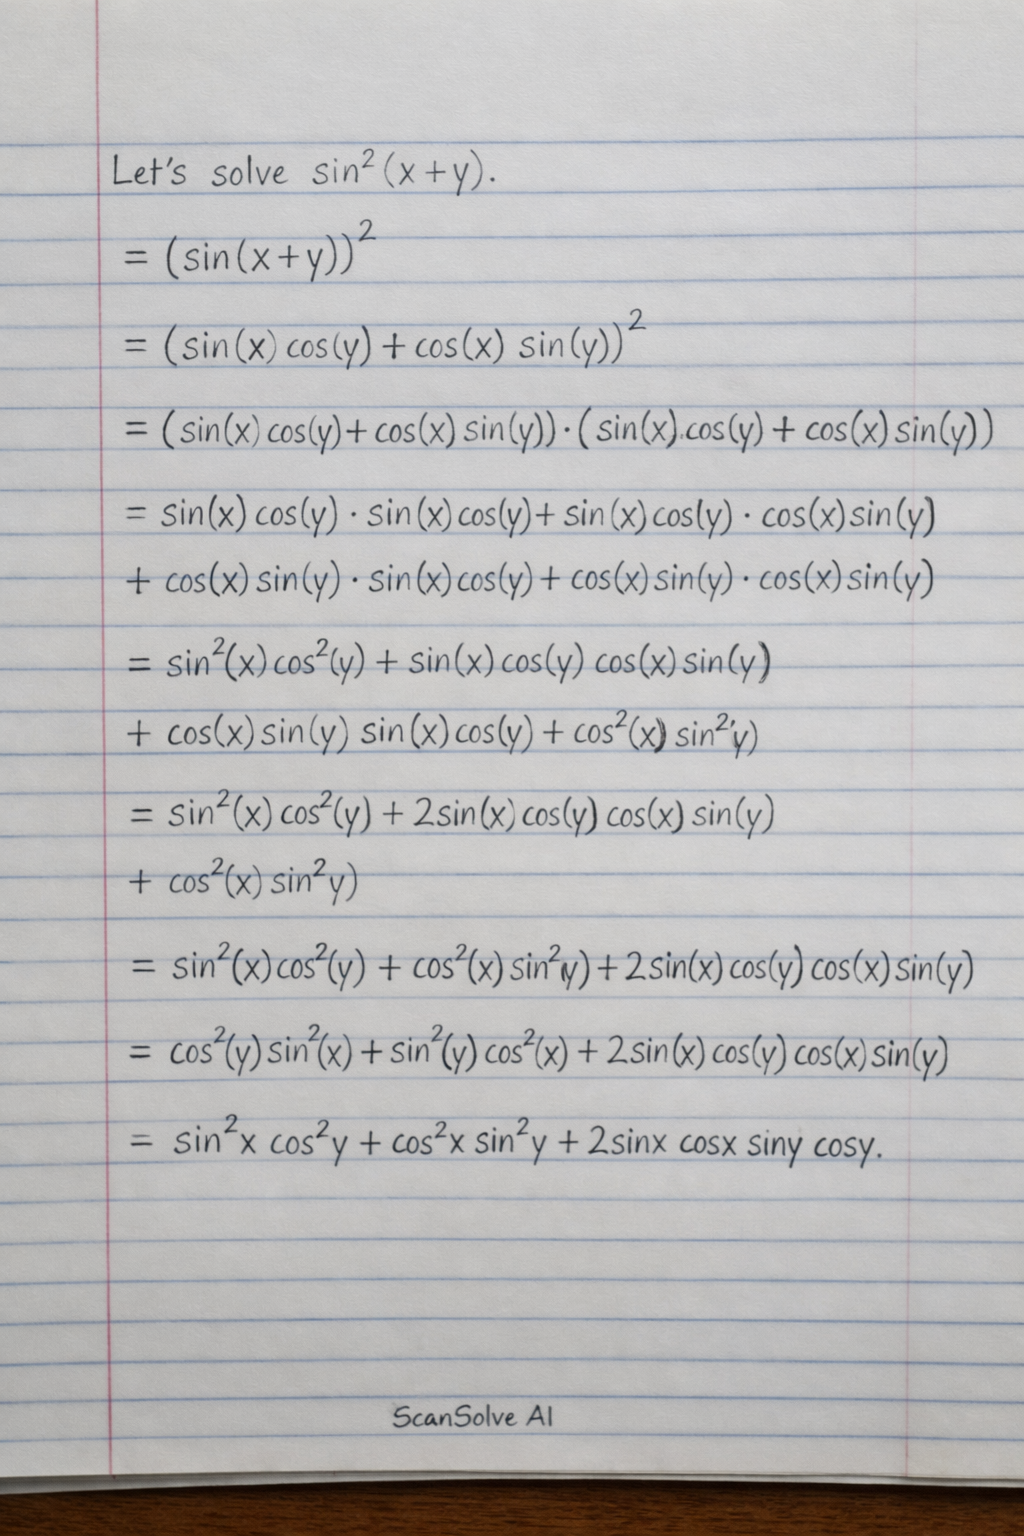 Let's solve sin²(x+y).
= (sin(x+y))²
= (sin(x) cos(y) + cos(x) sin(y))²
= (sin(x) cos(y) + cos(x) sin(y)) · (sin(x).cos(y) + cos(x) sin(y))
= sin(x) cos(y) · sin(x) cos(y) + sin(x) cos(y) · cos(x) sin(y)
+ cos(x) sin(y) · sin(x) cos(y) + cos(x) sin(y) · cos(x) sin(y)
= sin²(x) cos²(y) + sin(x) cos(y) cos(x) sin(y)
+ cos(x) sin(y) sin(x) cos(y) + cos²(x) sin²'y)
= sin²(x) cos²(y) + 2sin(x) cos(y) cos(x) sin(y)
+ cos²(x) sin²y)
= sin²(x) cos²(y) + cos²(x) sin²y) + 2sin(x) cos(y) cos(x) sin(y)
= cos²(y) sin²(x) + sin²(y) cos²(x) + 2sin(x) cos(y) cos(x) sin(y)
= sin²x cos²y + cos²x sin²y + 2sinx cosx siny cosy.
ScanSolve AI